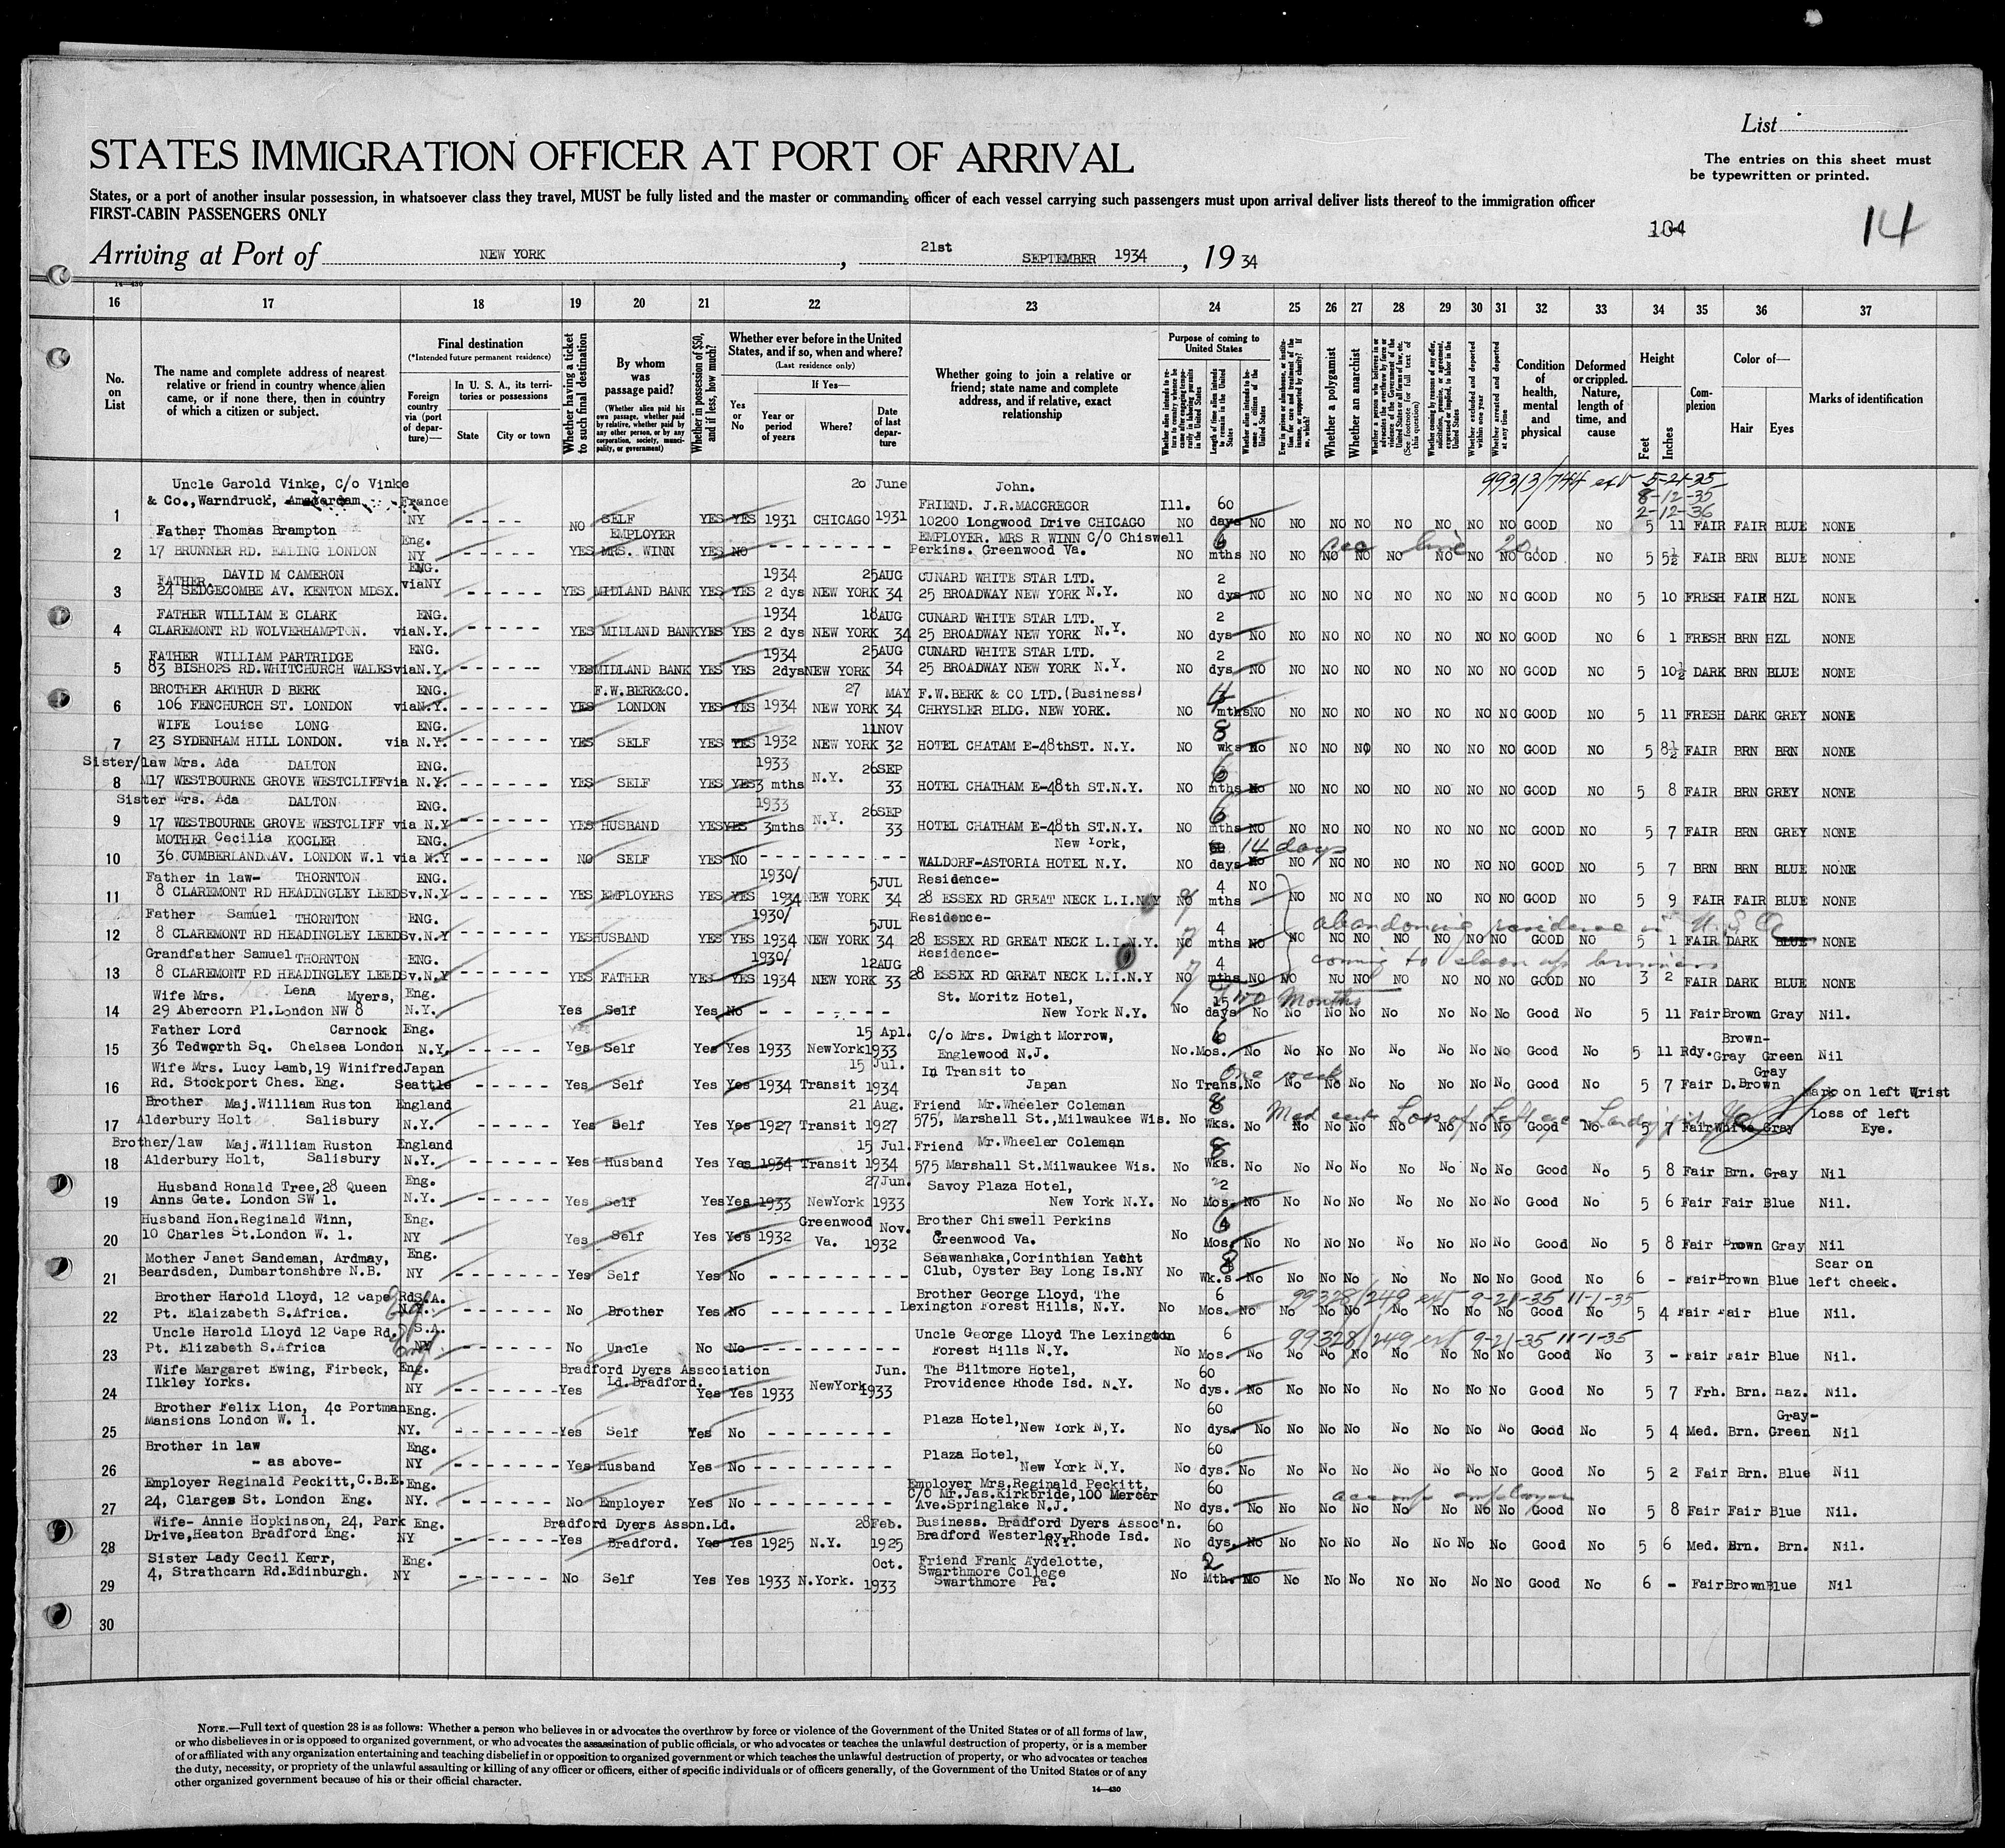 List
STATES IMMIGRATION OFFICER AT PORT OF ARRIVAL
The entries on this sheet must
be typewritten or printed.
States, or a port of another insular possession, in whatsoever class they travel, MUST be fully listed and the master or commanding officer of each vessel carrying such passengers must upon arrival deliver lists thereof to the immigration officer
FIRST-CABIN PASSENGERS ONLY
104
14
Arriving at Port of NEW YORK, 21st SEPTEMBER 1934, 1934
14—430
16 17 18 19 20 21 22 23 24 25 26 27 28 29 30 31 32 33 34 35 36 37
No. on List
The name and complete address of nearest relative or friend in country whence alien came, or if none there, then in country of which a citizen or subject.
Final destination
(*Intended future permanent residence)
Foreign country via (port of departure)—
In U. S. A., its territories or possessions
State
City or town
Whether having a ticket to such final destination
By whom was passage paid?
(Whether alien paid his own passage, whether paid by relative, whether paid by any other person, or by any corporation, society, municipality, or government)
Whether in possession of $50, and if less, how much?
Whether ever before in the United States, and if so, when and where?
(Last residence only)
Yes or No
If Yes—
Year or period of years
Where?
Date of last departure
Whether going to join a relative or friend; state name and complete address, and if relative, exact relationship
Purpose of coming to United States
Whether alien intends to return to country whence he came after engaging temporarily in laboring pursuits in the United States
Length of time alien intends to remain in the United States
Whether alien intends to become a citizen of the United States
Whether a polygamist
Whether an anarchist
Whether excluded and deported within one year
Whether arrested and deported at any time
Condition of health, mental and physical
Deformed or crippled. Nature, length of time, and cause
Height
Feet
Inches
Complexion
Color of—
Hair
Eyes
Marks of identification
99313/744 ext 5-21-35
8-12-35
2-12-36
Uncle Garold Vinke, C/o Vinke France 20 June John.
& Co., Warndruck, Amsterdam FRIEND. J.R.MACGREGOR Ill. 60
1 NY - - - - NO SELF YES YES 1931 CHICAGO 1931 10200 Longwood Drive CHICAGO NO days NO NO NO NO NO NO NO NO GOOD NO 5 11 FAIR FAIR BLUE NONE
Father Thomas Brampton Eng. EMPLOYER EMPLOYER. MRS R WINN C/O Chiswell 6 see line 20.
2 17 BRUNNER RD. EALING LONDON NY - - - - - YES MRS. WINN YES NO - - - - - - - - Perkins. Greenwood Va. NO mths NO NO NO NO NO NO NO NO GOOD NO 5 5½ FAIR BRN BLUE NONE
FATHER DAVID M CAMERON ENG. 1934 25AUG CUNARD WHITE STAR LTD. 2
3 24 SEDGECOMBE AV. KENTON MDSX. viaNY - - - - - YES MIDLAND BANK YES YES 2 dys NEW YORK 34 25 BROADWAY NEW YORK N.Y. NO dys NO NO NO NO NO NO NO NO GOOD NO 5 10 FRESH FAIR HZL NONE
FATHER WILLIAM E CLARK ENG. 1934 18AUG CUNARD WHITE STAR LTD. 2
4 CLAREMONT RD WOLVERHAMPTON. viaN.Y. - - - - - YES MIDLAND BANK YES YES 2 dys NEW YORK 34 25 BROADWAY NEW YORK N.Y. NO dys NO NO NO NO NO NO NO NO GOOD NO 6 1 FRESH BRN HZL NONE
FATHER WILLIAM PARTRIDGE ENG. 1934 25AUG CUNARD WHITE STAR LTD. 2
5 83 BISHOPS RD.WHITCHURCH WALES viaN.Y. - - - - - YES MIDLAND BANK YES YES 2dys NEW YORK 34 25 BROADWAY NEW YORK N.Y. NO dys NO NO NO NO NO NO NO NO GOOD NO 5 10½ DARK BRN BLUE NONE
BROTHER ARTHUR D BERK ENG. F.W.BERK&CO. 27 MAY F.W.BERK & CO LTD.(Business) 4
6 106 FENCHURCH ST. LONDON viaN.Y. - - - - - - YES LONDON YES YES 1934 NEW YORK 34 CHRYSLER BLDG. NEW YORK. NO mths NO NO NO NO NO NO NO NO GOOD NO 5 11 FRESH DARK GREY NONE
WIFE Louise LONG ENG. 11NOV 8
7 23 SYDENHAM HILL LONDON. via N.Y. - - - - - - YES SELF YES YES 1932 NEW YORK 32 HOTEL CHATAM E-48thST. N.Y. NO wks NO NO NO NO NO NO NO NO GOOD NO 5 8½ FAIR BRN BRN NONE
Sister/law Mrs. Ada DALTON ENG. 1933 26SEP 6
8 M17 WESTBOURNE GROVE WESTCLIFF via N.Y. - - - - - - YES SELF YES YES 3 mths N.Y. 33 HOTEL CHATHAM E-48th ST.N.Y. NO mths NO NO NO NO NO NO NO NO GOOD NO 5 8 FAIR BRN GREY NONE
Sister Mrs. Ada DALTON ENG. 1933 26SEP 6
9 17 WESTBOURNE GROVE WESTCLIFF via N.Y - - - - - - YES HUSBAND YES YES 3mths N.Y. 33 HOTEL CHATHAM E-48th ST.N.Y. NO mths NO NO NO NO NO NO NO NO GOOD NO 5 7 FAIR BRN GREY NONE
MOTHER Cecilia KOGLER ENG. New York, 14 days
10 36 CUMBERLAND AV. LONDON W.1 via N.Y - - - - - - NO SELF YES NO - - - - - - - - WALDORF-ASTORIA HOTEL N.Y. NO days NO NO NO NO NO NO NO NO GOOD NO 5 7 BRN BRN BLUE NONE
Father in law- THORNTON ENG. 1930/ 5JUL Residence- 4 NO
11 8 CLAREMONT RD HEADINGLEY LEEDS v.N.Y - - - - - - YES EMPLOYERS YES YES 1934 NEW YORK 34 28 ESSEX RD GREAT NECK L.I.N.Y NO mths NO NO NO NO NO NO NO GOOD NO 5 9 FAIR FAIR BLUE NONE
Father Samuel THORNTON ENG. 1930/ 5JUL Residence- 4 abandoning residence in U.S.A
12 8 CLAREMONT RD HEADINGLEY LEEDS v.N.Y - - - - - - YES HUSBAND YES YES 1934 NEW YORK 34 28 ESSEX RD GREAT NECK L.I.N.Y. NO mths NO NO NO NO NO NO NO NO GOOD NO 5 1 FAIR DARK BLUE NONE
Grandfather Samuel THORNTON ENG. 1930/ 12AUG Residence- 4 coming to clean up business
13 8 CLAREMONT RD HEADINGLEY LEEDS v.N.Y - - - - - - YES FATHER YES YES 1934 NEW YORK 33 28 ESSEX RD GREAT NECK L.I.N.Y NO mths NO NO NO NO NO NO NO NO GOOD NO 3 2 FAIR DARK BLUE NONE
Wife Mrs. Lena Myers, Eng. St. Moritz Hotel, 15 two Months
14 29 Abercorn Pl.London NW 8 N.Y. Yes Self Yes No - - - - - - New York N.Y. No days No No No No No No No No Good No 5 11 Fair Brown Gray Nil.
Father Lord Carnock Eng. 15 Apl. C/o Mrs. Dwight Morrow, 6 Brown-
15 36 Tedworth Sq. Chelsea London N.Y. - - - - - - Yes Self Yes Yes 1933 NewYork 1933 Englewood N.J. No. Mos. No No No No No No No No Good No 5 11 Rdy. Gray Green Nil
Wife Mrs. Lucy Lamb,19 Winifred Japan 15 Jul. In Transit to One week Gray
16 Rd. Stockport Ches. Eng. Seattle - - - - - Yes Self Yes Yes 1934 Transit 1934 Japan No Trans. No No No No No No No No Good No 5 7 Fair D.Brown Mark on left Wrist
Brother Maj.William Ruston England 21 Aug. Friend Mr.Wheeler Coleman 8 Med cert Loss of Left eye Loss of left
17 Alderbury Holt Salisbury N.Y. - - - - - - Yes Self Yes Yes 1927 Transit 1927 575, Marshall St.,Milwaukee Wis. No Wks. No No No No No No No No Good No 5 7 Fair White Gray Eye.
Brother/law Maj.William Ruston England 15 Jul. Friend Mr.Wheeler Coleman 8
18 Alderbury Holt, Salisbury N.Y. Yes Husband Yes Yes 1934 Transit 1934 575 Marshall St.Milwaukee Wis. No Wks. No No No No No No No No Good No 5 8 Fair Brn. Gray Nil
Husband Ronald Tree,28 Queen Eng. 27Jun. Savoy Plaza Hotel, 2
19 Anns Gate. London SW 1. N.Y. - - - - - Yes Self Yes Yes 1933 NewYork 1933 New York N.Y. No Mos. No No No No No No No No Good No 5 6 Fair Fair Blue Nil.
Husband Hon.Reginald Winn, Eng. Greenwood Nov. Brother Chiswell Perkins 6
20 10 Charles St.London W. 1. NY Yes Self Yes Yes 1932 Va. 1932 Greenwood Va. No Mos. No No No No No No No No Good No 5 8 Fair Brown Gray Nil
Mother Janet Sandeman, Ardmay, Eng. Seawanhaka,Corinthian Yacht 8 Scar on
21 Beardsden, Dumbartonshire N.B. NY - - - - - - Yes Self Yes No - - - - - - - - Club, Oyster Bay Long Is.NY No Wk.s. No No No No No No No No Good No 6 - Fair Brown Blue left cheek.
Brother Harold Lloyd, 12 Cape Rd. S.A. Brother George Lloyd, The 6 99328/249 ext 9-21-35 11-1-35
22 Pt. Elaizabeth S.Africa. N.Y. No Brother Yes No Lexington Forest Hills, N.Y. No Mos. No No No No No No No No Good No 5 4 Fair Fair Blue Nil.
Uncle Harold Lloyd 12 Cape Rd. S.A. Uncle George Lloyd The Lexington 6 99328/249 ext 9-21-35 11-1-35
23 Pt. Elizabeth S.Africa NY No Uncle No No Forest Hills N.Y. No Mos. No No No No No No No No Good No 3 - Fair Fair Blue Nil.
Wife Margaret Ewing, Firbeck, Eng. Bradford Dyers Asscoiation Jun. The Biltmore Hotel, 60
24 Ilkley Yorks. NY - - - - - - Yes Ld.Bradford. Yes Yes 1933 NewYork 1933 Providence Rhode Isd. N.Y. No dys. No No No No No No No No Good No 5 7 Frh. Brn. Haz. Nil.
Brother Felix Lion, 4c Portman Eng. Plaza Hotel, 60 Gray-
25 Mansions London W. 1. NY. - - - - - - Yes Self Yes No - - - - - - - - New York N,Y. No dys. No No No No No No No No Good No 5 4 Med. Brn. Green Nil
Brother in law Eng. Plaza Hotel, 60
26 - as above- NY - - - - - - Yes Husband Yes No - - - - - - - - New York N.Y. No dys. No No No No No No No No Good No 5 2 Fair Brn. Blue Nil
Employer Reginald Peckitt,C.B.E. Eng. Employer Mrs.Reginald Peckitt, 60
C/O Mr.Jas.Kirkbride,100 Mercer accomp employer
27 24, Clarges St. London Eng. NY. - - - - - - No Employer Yes No - - - - - - - - Ave.Springlake N.J. No dys. No No No No No No No No Good No 5 8 Fair Fair Blue Nil.
Wife- Annie Hopkinson, 24, Park Eng. Bradford Dyers Asson.Ld. 28Feb. Business. Bradford Dyers Assoc'n. 60
28 Drive,Heaton Bradford Eng. NY - - - - - - Yes Bradford. Yes Yes 1925 N.Y. 1925 Bradford Westerley,Rhode Isd. N.Y. No dys. No No No No No No No No Good No 5 6 Med. Brn. Brn. Nil.
Sister Lady Cecil Kerr, Eng. Oct. Friend Frank Aydelotte, 2
29 4, Strathcarn Rd.Edinburgh. NY - - - - - - No Self Yes Yes 1933 N.York. 1933 Swarthmore College Swarthmore Pa. No Mth. No No No No No No No No Good No 6 - Fair Brown Blue Nil
30
NOTE.—Full text of question 28 is as follows: Whether a person who believes in or advocates the overthrow by force or violence of the Government of the United States or of all forms of law,
or who disbelieves in or is opposed to organized government, or who advocates the assassination of public officials, or who advocates or teaches the unlawful destruction of property, or is a member
of or affiliated with any organization entertaining and teaching disbelief in or opposition to organized government or which teaches the unlawful destruction of property, or who advocates or teaches
the duty, necessity, or propriety of the unlawful assaulting or killing of any officer or officers, either of specific individuals or of officers generally, of the Government of the United States or of any
other organized government because of his or their official character.
14—430